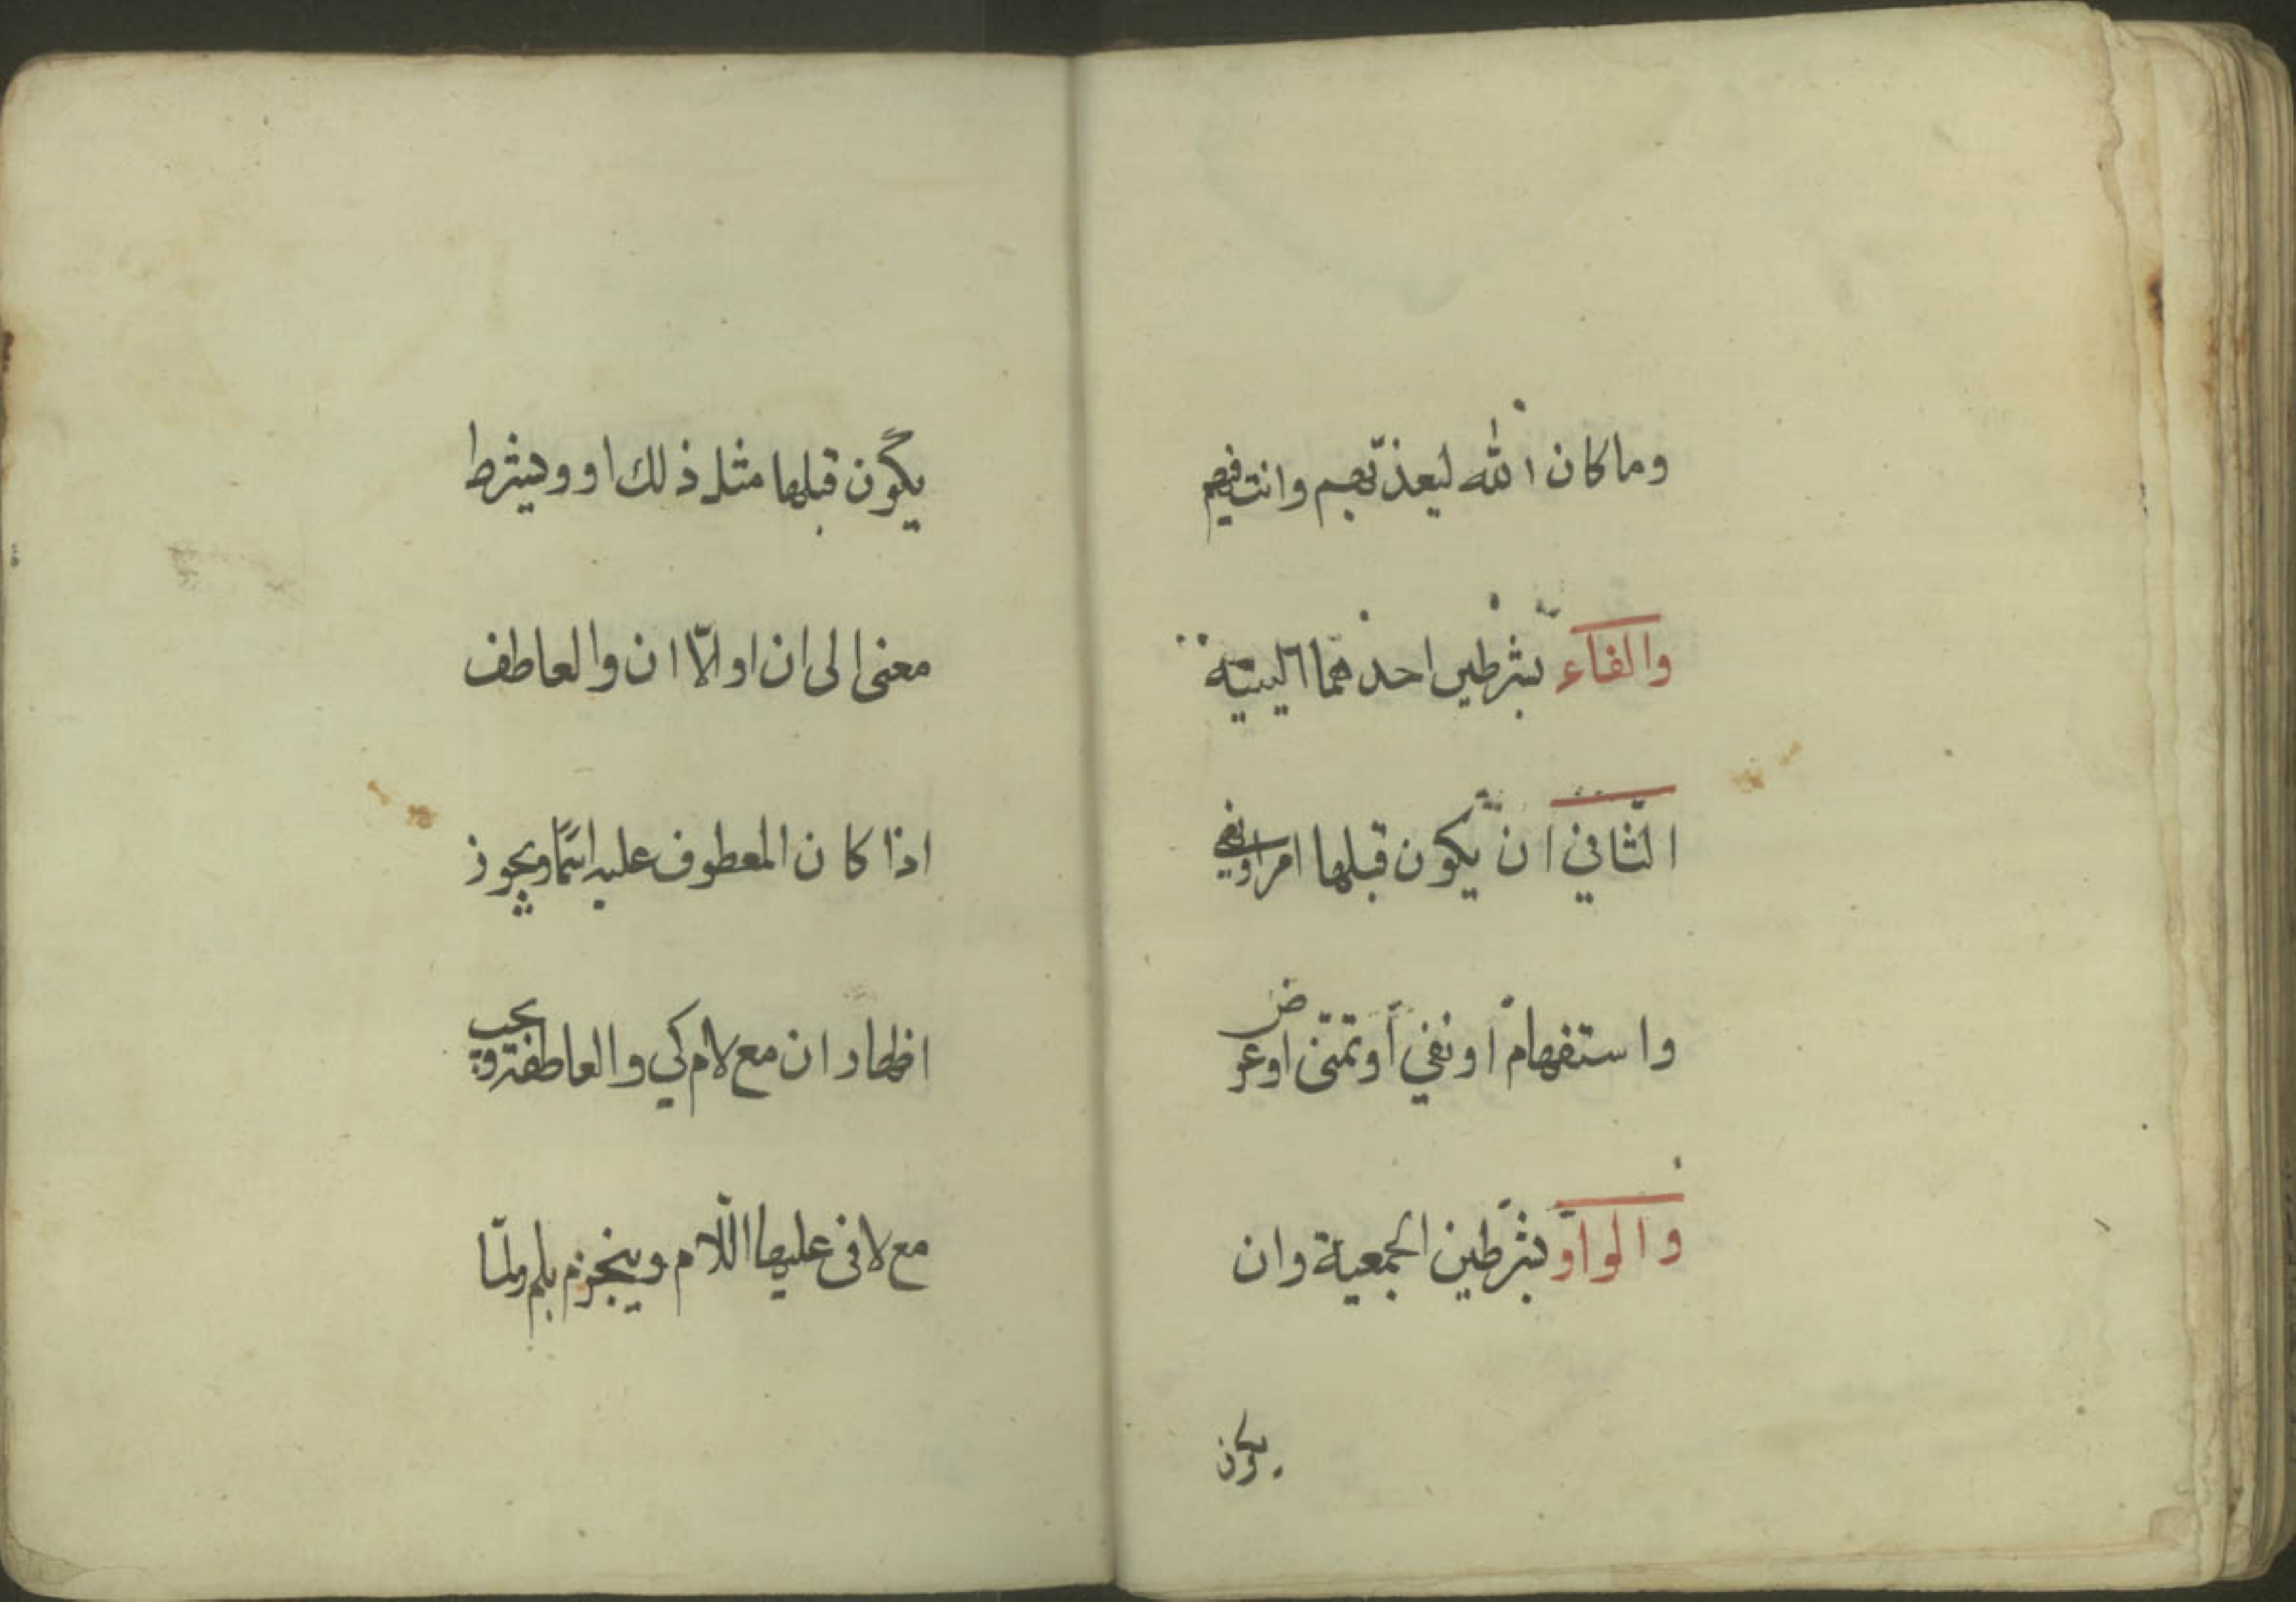 وما كان الله ليعذبهم وانت فيهم
والفاء بشرطين احدهما السببية
الثاني ان يكون قبلها امر او نهي
واستفهام او نفي او تمنى او عرض
والواو بشرطين الجمعية وان
يكون
يكون قبلها مثل ذلك او وبشرط
معنى الى ان او الّا ان والعاطف
اذا كان المعطوف عليه اسمًا ويجوز
اظهار ان مع لام كي والعاطفة ويجب
مع لا فى عليها اللّام وينجزم بلم ولمّا